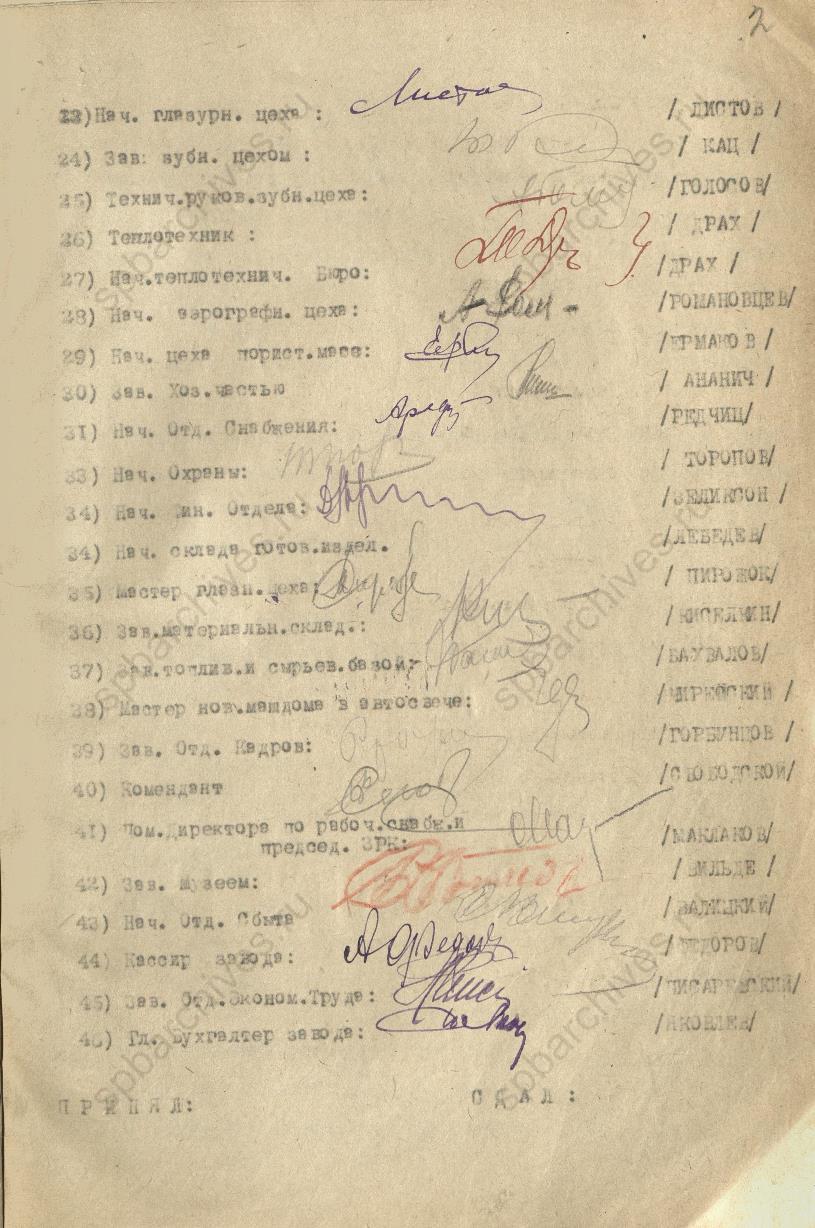 2
23)Нач. глазурн. цеха : Листов / ЛИСТОВ /
24) Зав. зубн. цехом : / КАЦ /
25) Технич.руков.зубн.цеха: /ГОЛОСОВ/
26) Теплотехник : / ДРАХ /
27) Нач.теплотехнич. Бюро: /ДРАХ /
28) Нач. аэрографн. цеха: /РОМАНОВЦЕВ/
29) Нач. цеха порист.масс: /ЕРМАКОВ /
30) Зав. Хоз.частью / АНАНИЧ /
31) Нач. Отд. Снабжения: /РЕДЧИЦ/
33) Нач. Охраны: / ТОРОПОВ/
34) Нач. Фин. Отдела: /ЗЕЛИКСОН /
34) Нач. склада готов.издел. /ЛЕБЕДЕВ/
35) Мастер глазн.цеха: / ПИРОЖОК/
36) Зав.материальн.склад.: /КИСЕЛЬМАН/
37) Зав.топлив.и сырьев.базой: /БАХВАЛОВ/
38) Мастер нов.машдома в автосвече:
39) Зав. Отд. Кадров: /ГОРБУНЦОВ /
40) Комендант /СЛОБОДСКОЙ/
41) Пом.Директора по рабоч.снабж.и
председ. ЗРК: /МАКЛАКОВ/
42) Зав. Музеем: / ВИЛЬДЕ /
43) Нач. Отд. Сбыта /ВАЛИЦКИЙ/
44) Кассир завода: А Федоров /ФЕДОРОВ/
45) Зав. Отд.Эконом.Труда: /ПИСАРЕВСКИЙ/
46) Гл. Бухгалтер завода: /ЯКОВЛЕВ/
П Р И Н Я Л: С Д А Л :
spbarchives.ru